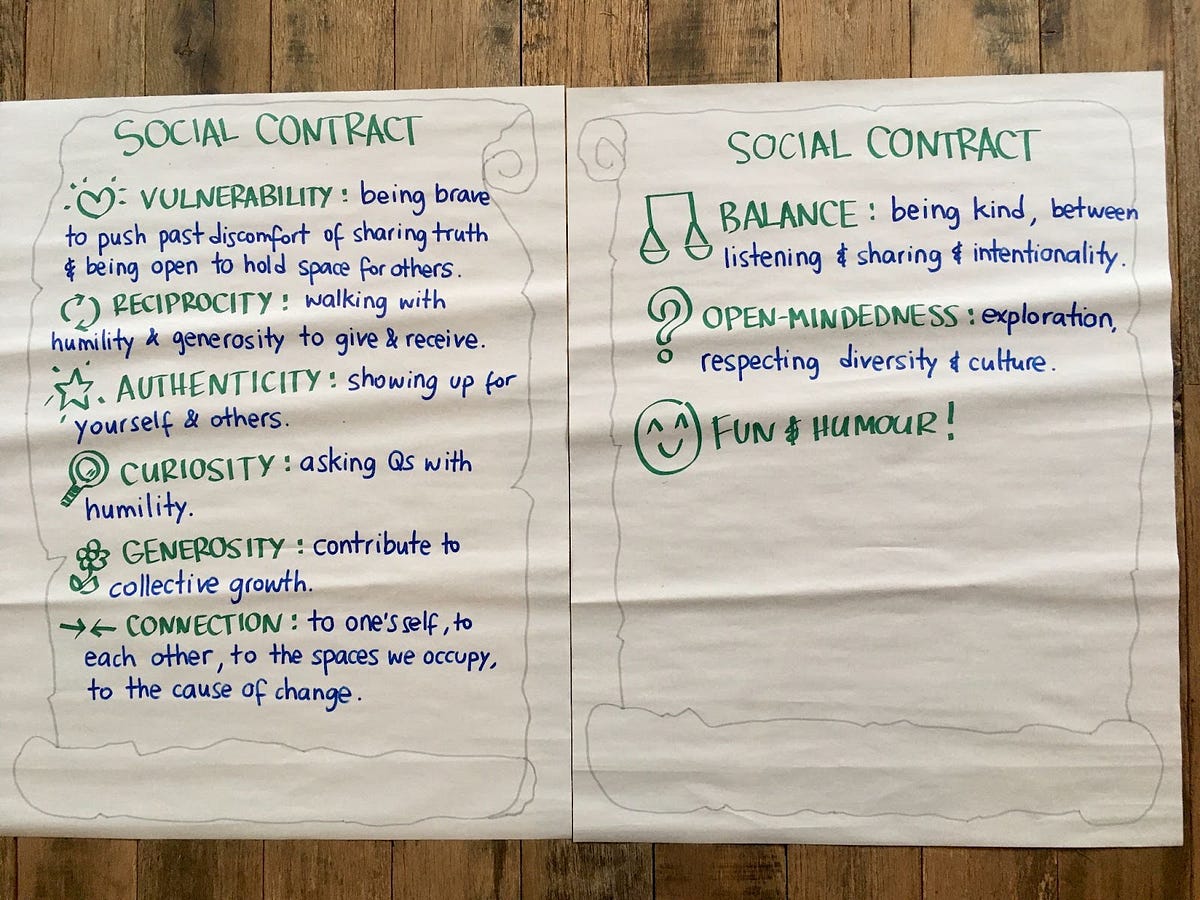 SOCIAL CONTRACT
VULNERABILITY : being brave
to push past discomfort of sharing truth
& being open to hold space for others.
RECIPROCITY : walking with
humility & generosity to give & receive.
AUTHENTICITY : showing up for
yourself & others.
CURIOSITY : asking Qs with
humility.
GENEROSITY : contribute to
collective growth.
CONNECTION : to one's self, to
each other, to the spaces we occupy,
to the cause of change.
SOCIAL CONTRACT
BALANCE : being kind, between
listening & sharing & intentionality.
OPEN-MINDEDNESS : exploration,
respecting diversity & culture.
FUN & HUMOUR!